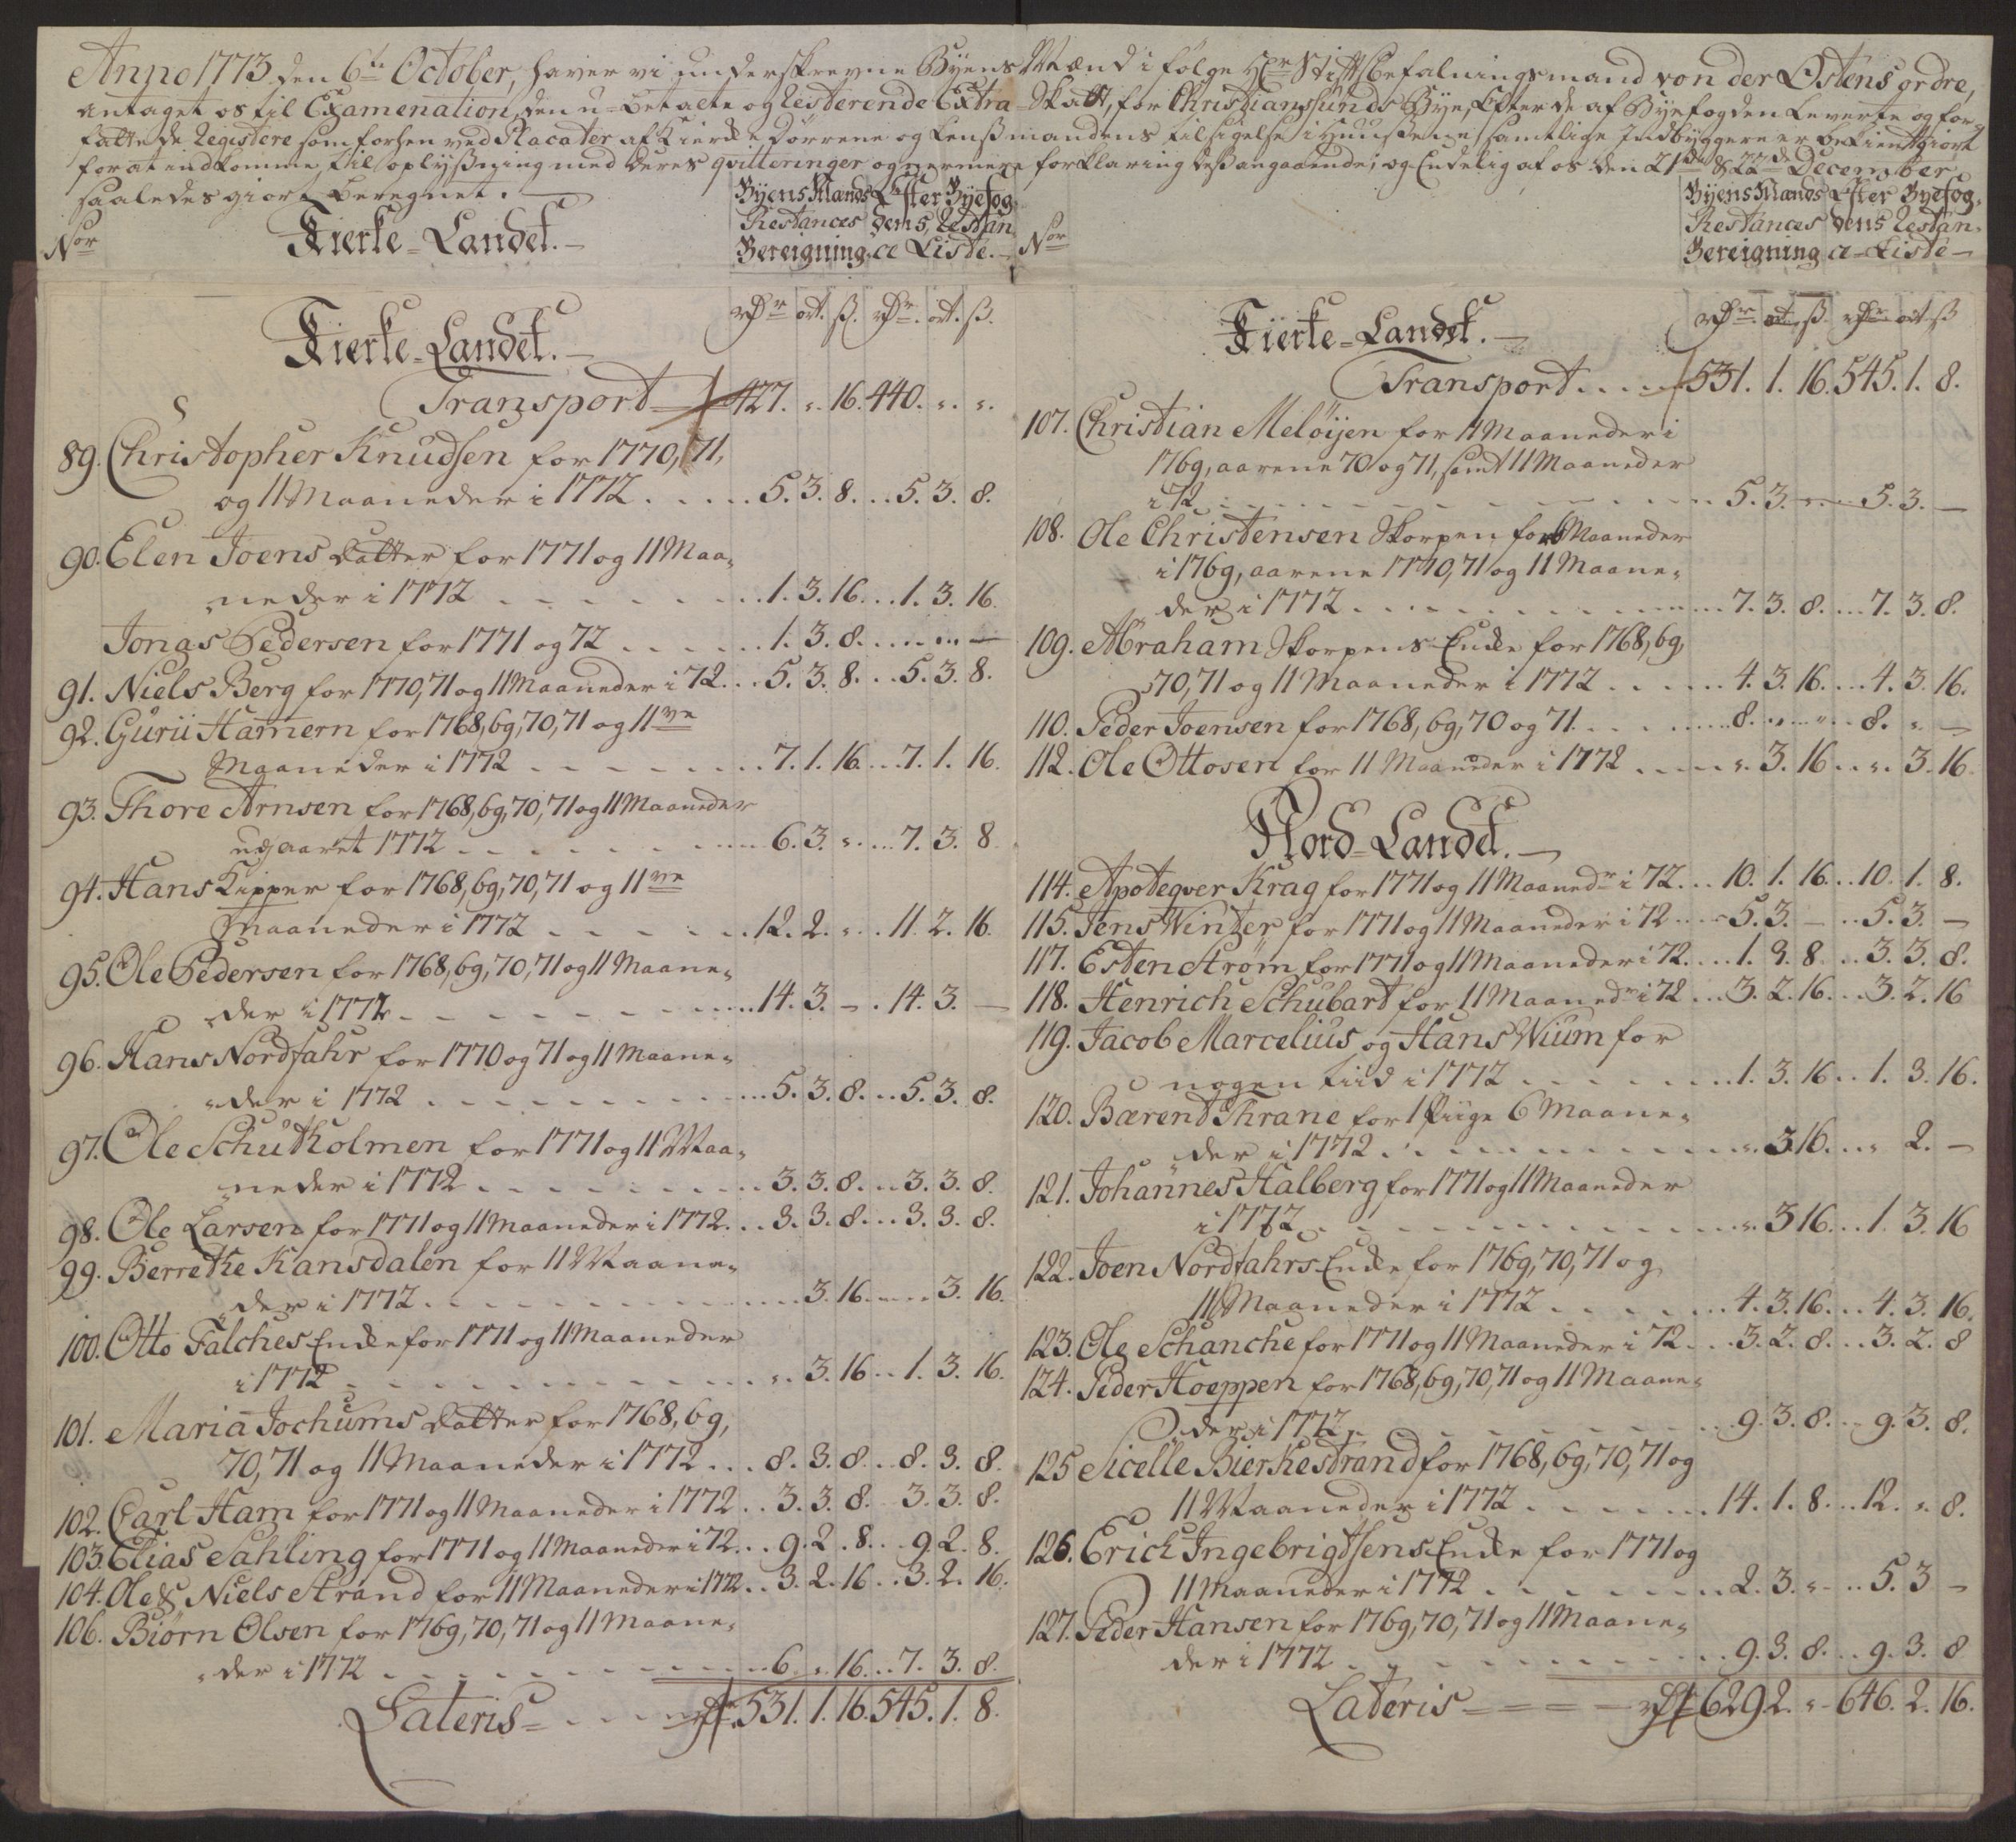 Anno 1773 den 6te October, haver vi underskrevne Byens Mænd i følge Hr Stiftsbefalningsmand von der Østens ordre,
antaget os til Examenation, den u-betalte og Resterende Extra-Skatt, for Christiansunds Bye, Efter de af Byefogden Leverte og for-
fattede Registere som forhen ved Placater af Kierke Dørrene og Lensmandens tilsigelse i Huusene samtlige Indbyggere er bekientgiort
for at indkomme til oplysning med deres qvitteringer og nermere forklaring desangaaende; og Endelig af os den 21de & 22de December
saaledes giort beregnet.
Nor
Kierke-Landet.
Byens Mænds Efter Byefog
Restances dens Restan
Bereigning ce Liste.
Kierke-Landet.
rdr ort. ß. rdr. ort. ß.
Transport 427. " 16. 440. " "
89. Christopher Knudsen for 1770, 71,
og 11 Maaneder i 1772 . . . . . 5. 3. 8. . . 5. 3. 8.
90. Elen Joens Datter for 1771 og 11 Maa-
neder i 1772 . . . 1. 3. 16. . . 1. 3. 16.
Jonas Pedersen for 1771 og 72 . . . 1. 3. 8. . . . . —
91. Niels Berg for 1770, 71 og 11 Maaneder i 72. . . 5. 3. 8. . . 5. 3. 8.
92. Gurii Hamern for 1768, 69, 70, 71 og 11ve
Maaneder i 1772 . . . 7. 1. 16. . . 7. 1. 16.
93. Thore Arnsen for 1768, 69, 70, 71 og 11 Maaneder
udj aaret 1772 . . . 6. 3. " . . 7. 3. 8.
94. Hans Kipper for 1768, 69, 70, 71 og 11ve
Maaneder i 1772 . . . 12. 2. " . . 11. 2. 16.
95. Ole Pedersen for 1768, 69, 70, 71 og 11 Maane-
der i 1772 . . . 14. 3. – . 14. 3. —
96. Hans Nordfahr for 1770 og 71 og 11 Maane-
der i 1772 . . . 5. 3. 8. . . 5. 3. 8.
97. Ole Schutholmen for 1771 og 11 Maa-
neder i 1772 . . . 3. 3. 8. . . 3. 3. 8.
98. Ole Larsen for 1771 og 11 Maaneder i 1772. . . 3. 3. 8. . . 3. 3. 8.
99. Berrethe Kansdalen for 11 Maane-
der i 1772 . . . 3. 16. . . 3. 16.
100. Otto Falches Encke for 1771 og 11 Maaneder
i 1772 . . . ". 3. 16. . 1. 3. 16.
101. Maria Jochums Datter for 1768, 69,
70, 71 og 11 Maaneder i 1772 . . . 8. 3. 8. . . 8. 3. 8.
102. Carl Ham for 1771 og 11 Maaneder i 1772 . . 3. 3. 8. . 3. 3. 8.
103. Elias Sahling for 1771 og 11 Maaneder i 72. . . 9. 2. 8. . . 9. 2. 8.
104. Ole & Niels Strand for 11 Maaneder i 1772. . 3. 2. 16. . . 3. 2. 16.
106. Biørn Olsen for 1769, 70, 71 og 11 Maane-
der i 1772 . . . 6. " 16. . . 7. 3. 8.
Lateris . . . rdr 531. 1. 16. 545. 1. 8.
Nor
Byens Mænds Efter Byefog-
Restances dens Restan-
Bereigning ce-Liste
Kierke-Landet.
rdr. ort. ß. rdr. ort ß
Transport . . . 531. 1. 16. 545. 1. 8.
107. Christian Meløijen for 11 Maaneder i
1769, aarene 70 og 71, samt 11 Maaneder
i 72 . . . 5. 3. – . . 5. 3. —
108. Ole Christensen Skorpen for 6 Maaneder
i 1769, aarene 1770, 71 og 11 Maane-
der i 1772 . . . 7. 3. 8. . . 7. 3. 8.
109. Abraham Skorpens Encke for 1768, 69,
70, 71 og 11 Maaneder i 1772 . . . 4. 3. 16. . . 4. 3. 16.
110. Peder Joensen for 1768, 69, 70 og 71 . . . 8. " . . " 8. " —
112. Ole Ottosen for 11 Maaneder i 1772 . . . ". 3. 16. . ". 3. 16.
Nord-Landet.
114. Apoteqver Krag for 1771 og 11 Maanedr i 72. . . 10. 1. 16. . 10. 1. 8.
115. Jens Winter for 1771 og 11 Maaneder i 72 . . . 5. 3. – . . 5. 3. —
117. Esten Strøm for 1771 og 11 Maaneder i 72. . . 1. 3. 8. . . 3. 3. 8.
118. Henrich Schubart for 11 Maanedr i 72 . . . 3. 2. 16. . . 3. 2. 16
119. Jacob Marcelius og Hans Wium for
nogen tiid i 1772 . . . 1. 3. 16. . 1. 3. 16.
120. Bærent Thrane for 1 Piige 6 Maane-
der i 1772 . . . ". 3 16. . . " 2. —
121. Johannes Halberg for 1771 og 11 Maaneder
i 1772 . . . ". 3 16. . . 1. 3. 16
122. Joen Nordfahrs Encke for 1769, 70, 71 og
11 Maaneder i 1772 . . . 4. 3. 16. . . 4. 3. 16.
123. Ole Schanche for 1771 og 11 Maaneder i 72 . . . 3. 2. 8. . . 3. 2. 8
124. Peder Hoeppen for 1768, 69, 70, 71 og 11 Maane-
der i 1772 . . . 9. 3. 8. . . 9. 3. 8.
125 Sicelle Bierkestrand for 1768, 69, 70, 71 og
11 Maaneder i 1772 . . . 14. 1. 8. . . 12. " 8.
126. Erich Ingebrigtsens Encke for 1771 og
11 Maaneder i 1772 . . . 2. 3. " . . . 5. 3 –
127. Peder Hansen for 1769, 70, 71 og 11 Maane-
der i 1772 . . . 9. 3. 8. . . 9. 3. 8
Lateris — — — rdr 629 2. " – 646. 2. 16.